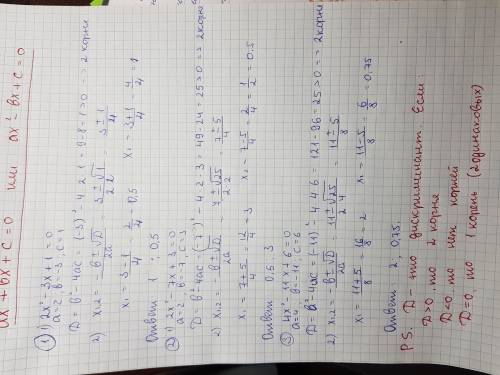 ax² + bx + c = 0 или ax² - bx + c = 0
① 1) 2x² - 3x + 1 = 0
a = 2; b = -3; c = 1
D = b² - 4ac = (-3)² - 4·2·1 = 9 - 8 = 1 > 0 => 2 корня
2) x₁,₂ = (-b ± √D)/2a = (3 ± √1)/2·2 = (3 ± 1)/4
x₁ = (3 - 1)/4 = 2/4 = 0,5 x₂ = (3 + 1)/4 = 4/4 = 1
Ответ: 1; 0,5
② 1) 2x² - 7x + 3 = 0
a = 2; b = -7; c = 3
D = b² - 4ac = (-7)² - 4·2·3 = 49 - 24 = 25 > 0 => 2 корня
2) x₁,₂ = (-b ± √D)/2a = (7 ± √25)/2·2 = (7 ± 5)/4
x₁ = (7 + 5)/4 = 12/4 = 3 x₂ = (7 - 5)/4 = 2/4 = 1/2 = 0.5
Ответ: 0,5; 3
③ 4x² - 11x + 6 = 0
a = 4; b = -11; c = 6
D = b² - 4ac = (-11)² - 4·4·6 = 121 - 96 = 25 > 0 => 2 корня
2) x₁,₂ = (-b ± √D)/2a = (11 ± √25)/2·4 = (11 ± 5)/8
x₁ = (11 + 5)/8 = 16/8 = 2 x₁ = (11 - 5)/8 = 6/8 = 0,75
Ответ: 2; 0,75.
P.S. D - это дискриминант. Если:
D > 0, то 2 корня
D = 0, то нет корней
D = 0, то 1 корень (2 одинаковых)